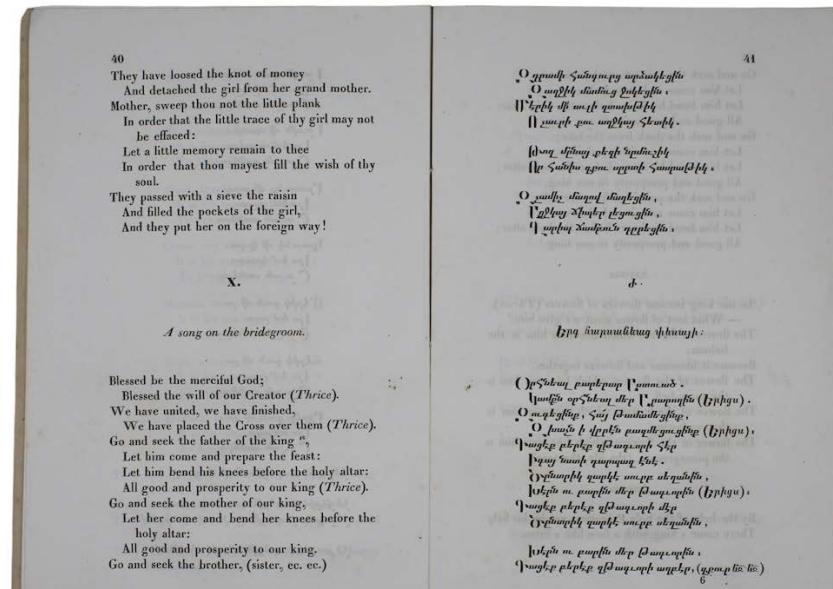 40
They have loosed the knot of money
And detached the girl from her grand mother.
Mother, sweep thou not the little plank
In order that the little trace of thy girl may not
be effaced:
Let a little memory remain to thee
In order that thou mayest fill the wish of thy
soul.
They passed with a sieve the raisin
And filled the pockets of the girl,
And they put her on the foreign way!
X.
A song on the bridegroom.
Blessed be the merciful God;
Blessed the will of our Creator (Thrice).
We have united, we have finished,
We have placed the Cross over them (Thrice).
Go and seek the father of the king
Let him come and prepare the feast:
Let him bend his knees before the holy altar:
All good and prosperity to our king (Thrice).
Go and seek the mother of our king,
Let her come and bend her knees before the
holy altar:
All good and prosperity to our king.
Go and seek the brother, (sister, ec. ec.)
41
Զդրամի հանգուրց արձակեցին
Զաղջիկ մամուց ջոկեցին։
Մերիկ մի աւլի զտախթիկ
Թող մընայ քեզի նըմուշիկ
Զչամիչ մաղով մաղեցին,
Աղջկայ ճիպեր լըցուցին,
Ժ.
Երգ հարսանեաց փեսայի։
Օրհնեալ բարերար Աստուած.
Կամքն օրհնեալ մեր Արարողին (Երիցս).
Զխաչն ի վըրէն բազմեցուցինք (Երիցս)։
Գացէք բերէք զԹագւորի հէր
Խերն ու բարին մեր Թագւորին (Երիցս)։
Գացէք բերէք զԹագւորի մէր
Խերն ու բարին մեր Թագւորին։
Գացէք բերէք զԹագւորի աղբէր, (զքուր
6